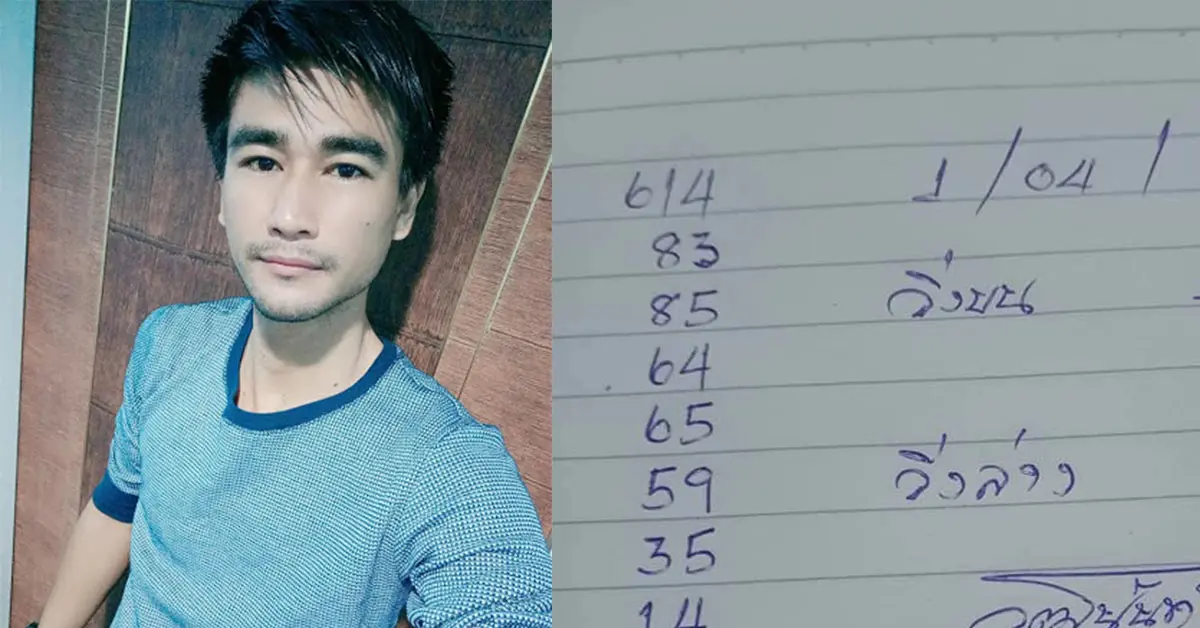 614 1/04/
83
85 วิ่งบน
64
65
59 วิ่งล่าง
35
14